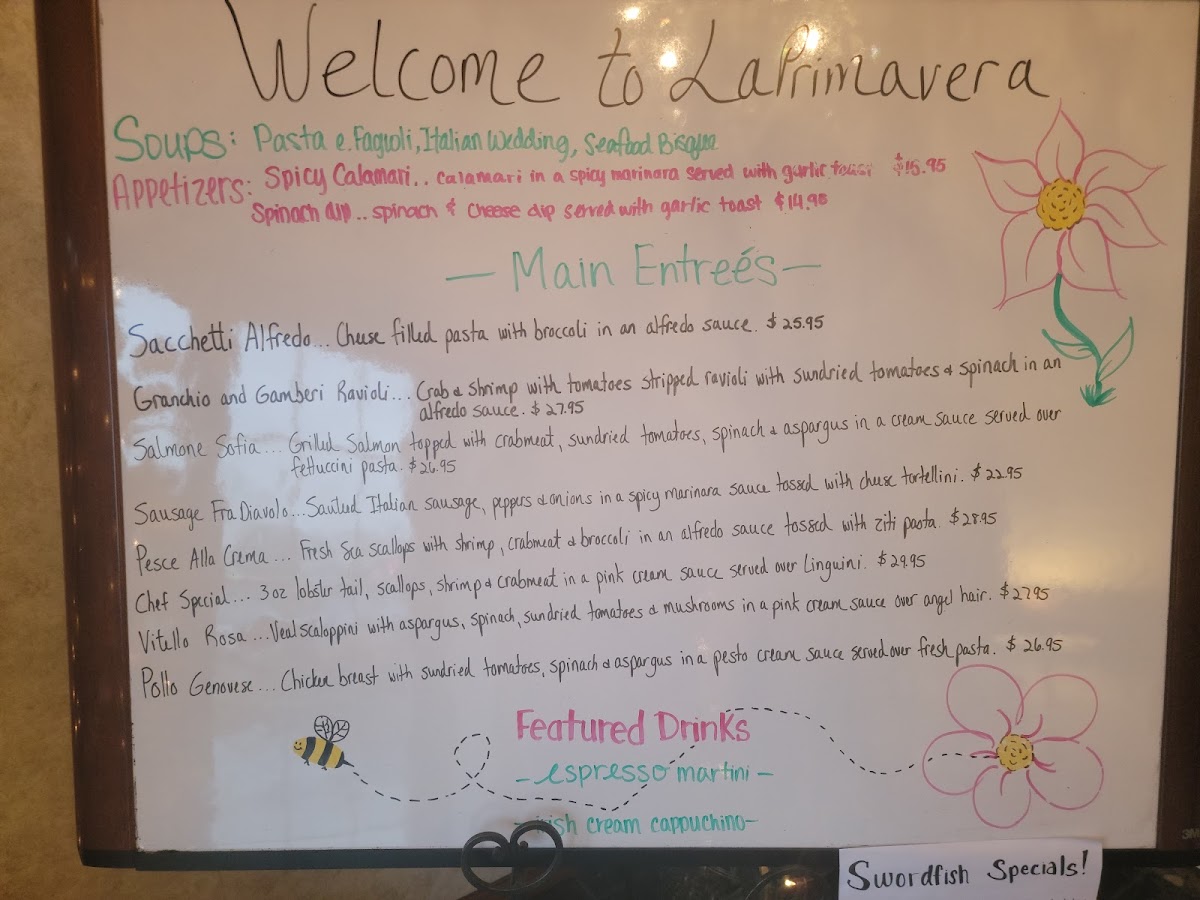 Welcome to LaPrimavera
Soups: Pasta e. Fagioli, Italian Wedding, Seafood Bisque
Appetizers: Spicy Calamari.. calamari in a spicy marinara served with garlic toast $15.95
Spinach dip.. spinach & cheese dip served with garlic toast $14.95
— Main Entreés —
Sacchetti Alfredo... Cheese filled pasta with broccoli in an alfredo sauce. $25.95
Granchio and Gamberi Ravioli... Crab & shrimp with tomatoes stripped ravioli with sundried tomatoes & spinach in an
alfredo sauce. $27.95
Salmone Sofia... Grilled Salmon topped with crabmeat, sundried tomatoes, spinach & aspargus in a cream sauce served over
fettuccini pasta. $26.95
Sausage Fra Diavolo... Sauteed Italian sausage, peppers & onions in a spicy marinara sauce tossed with cheese tortellini. $22.95
Pesce Alla Crema... Fresh Sea scallops with shrimp, crabmeat & broccoli in an alfredo sauce tossed with ziti pasta. $28.95
Chef Special... 3 oz lobster tail, scallops, shrimp & crabmeat in a pink cream sauce served over Linguini. $29.95
Vitello Rosa ...Veal scaloppini with aspargus, spinach, sundried tomatoes & mushrooms in a pink cream sauce over angel hair. $27.95
Pollo Genovese... Chicken breast with sundried tomatoes, spinach & aspargus in a pesto cream sauce served over fresh pasta. $26.95
Featured Drinks
- espresso martini -
cream cappuchino-
Swordfish Specials!